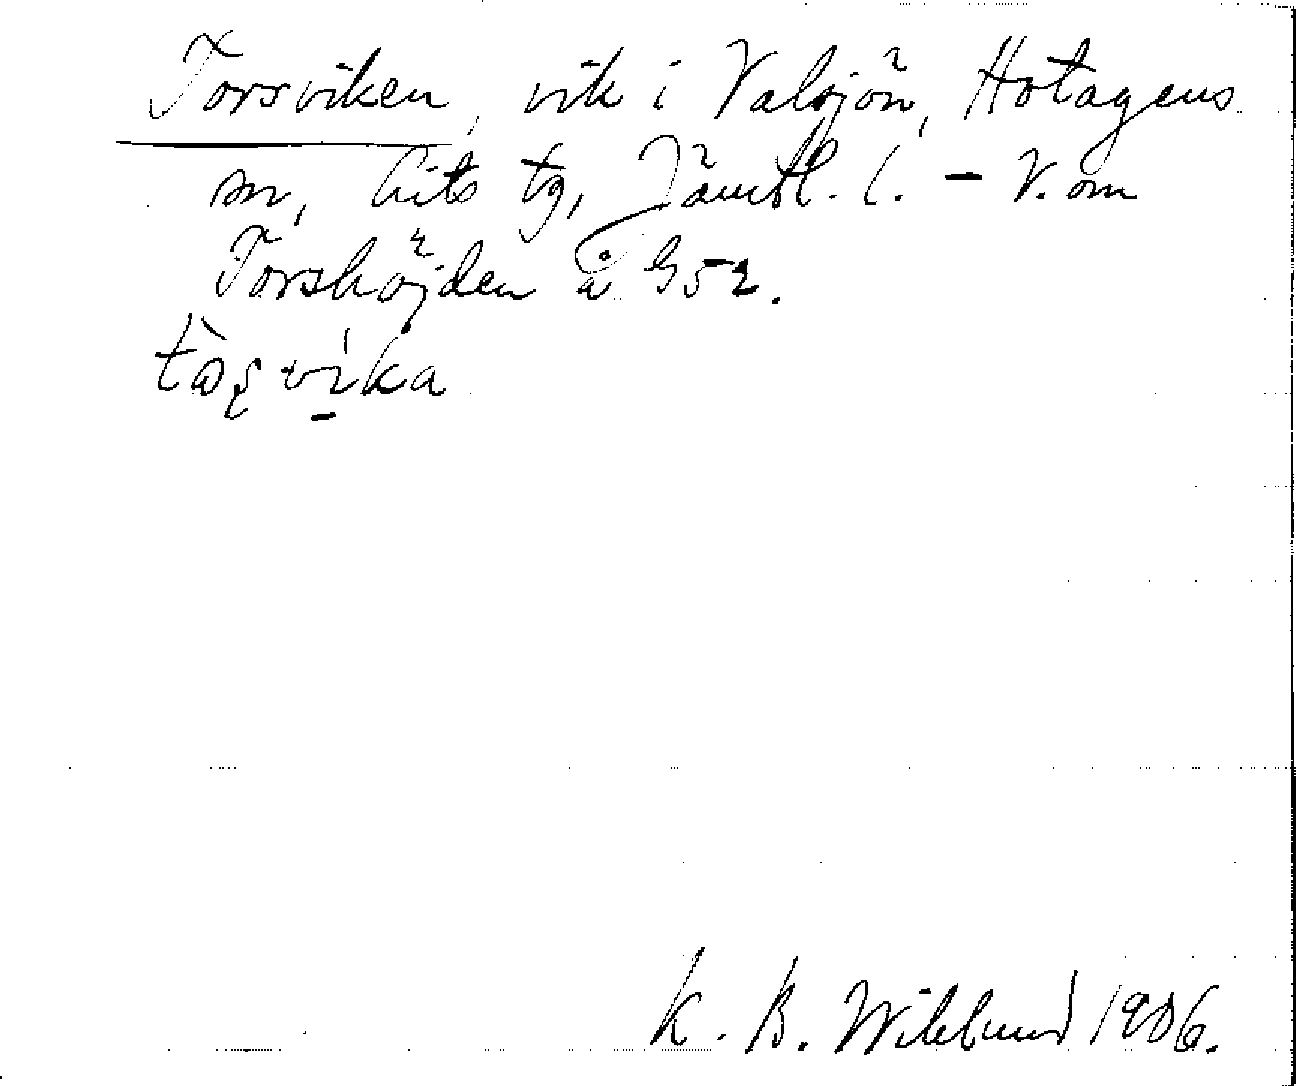 Torsviken, vik i Valsjön, Hotagens
sn, Lits tg, Jämtl. l. – V. om
Torshöjden å G52.
tɷ̀ʂvíka
K. B. Wiklund 1906.